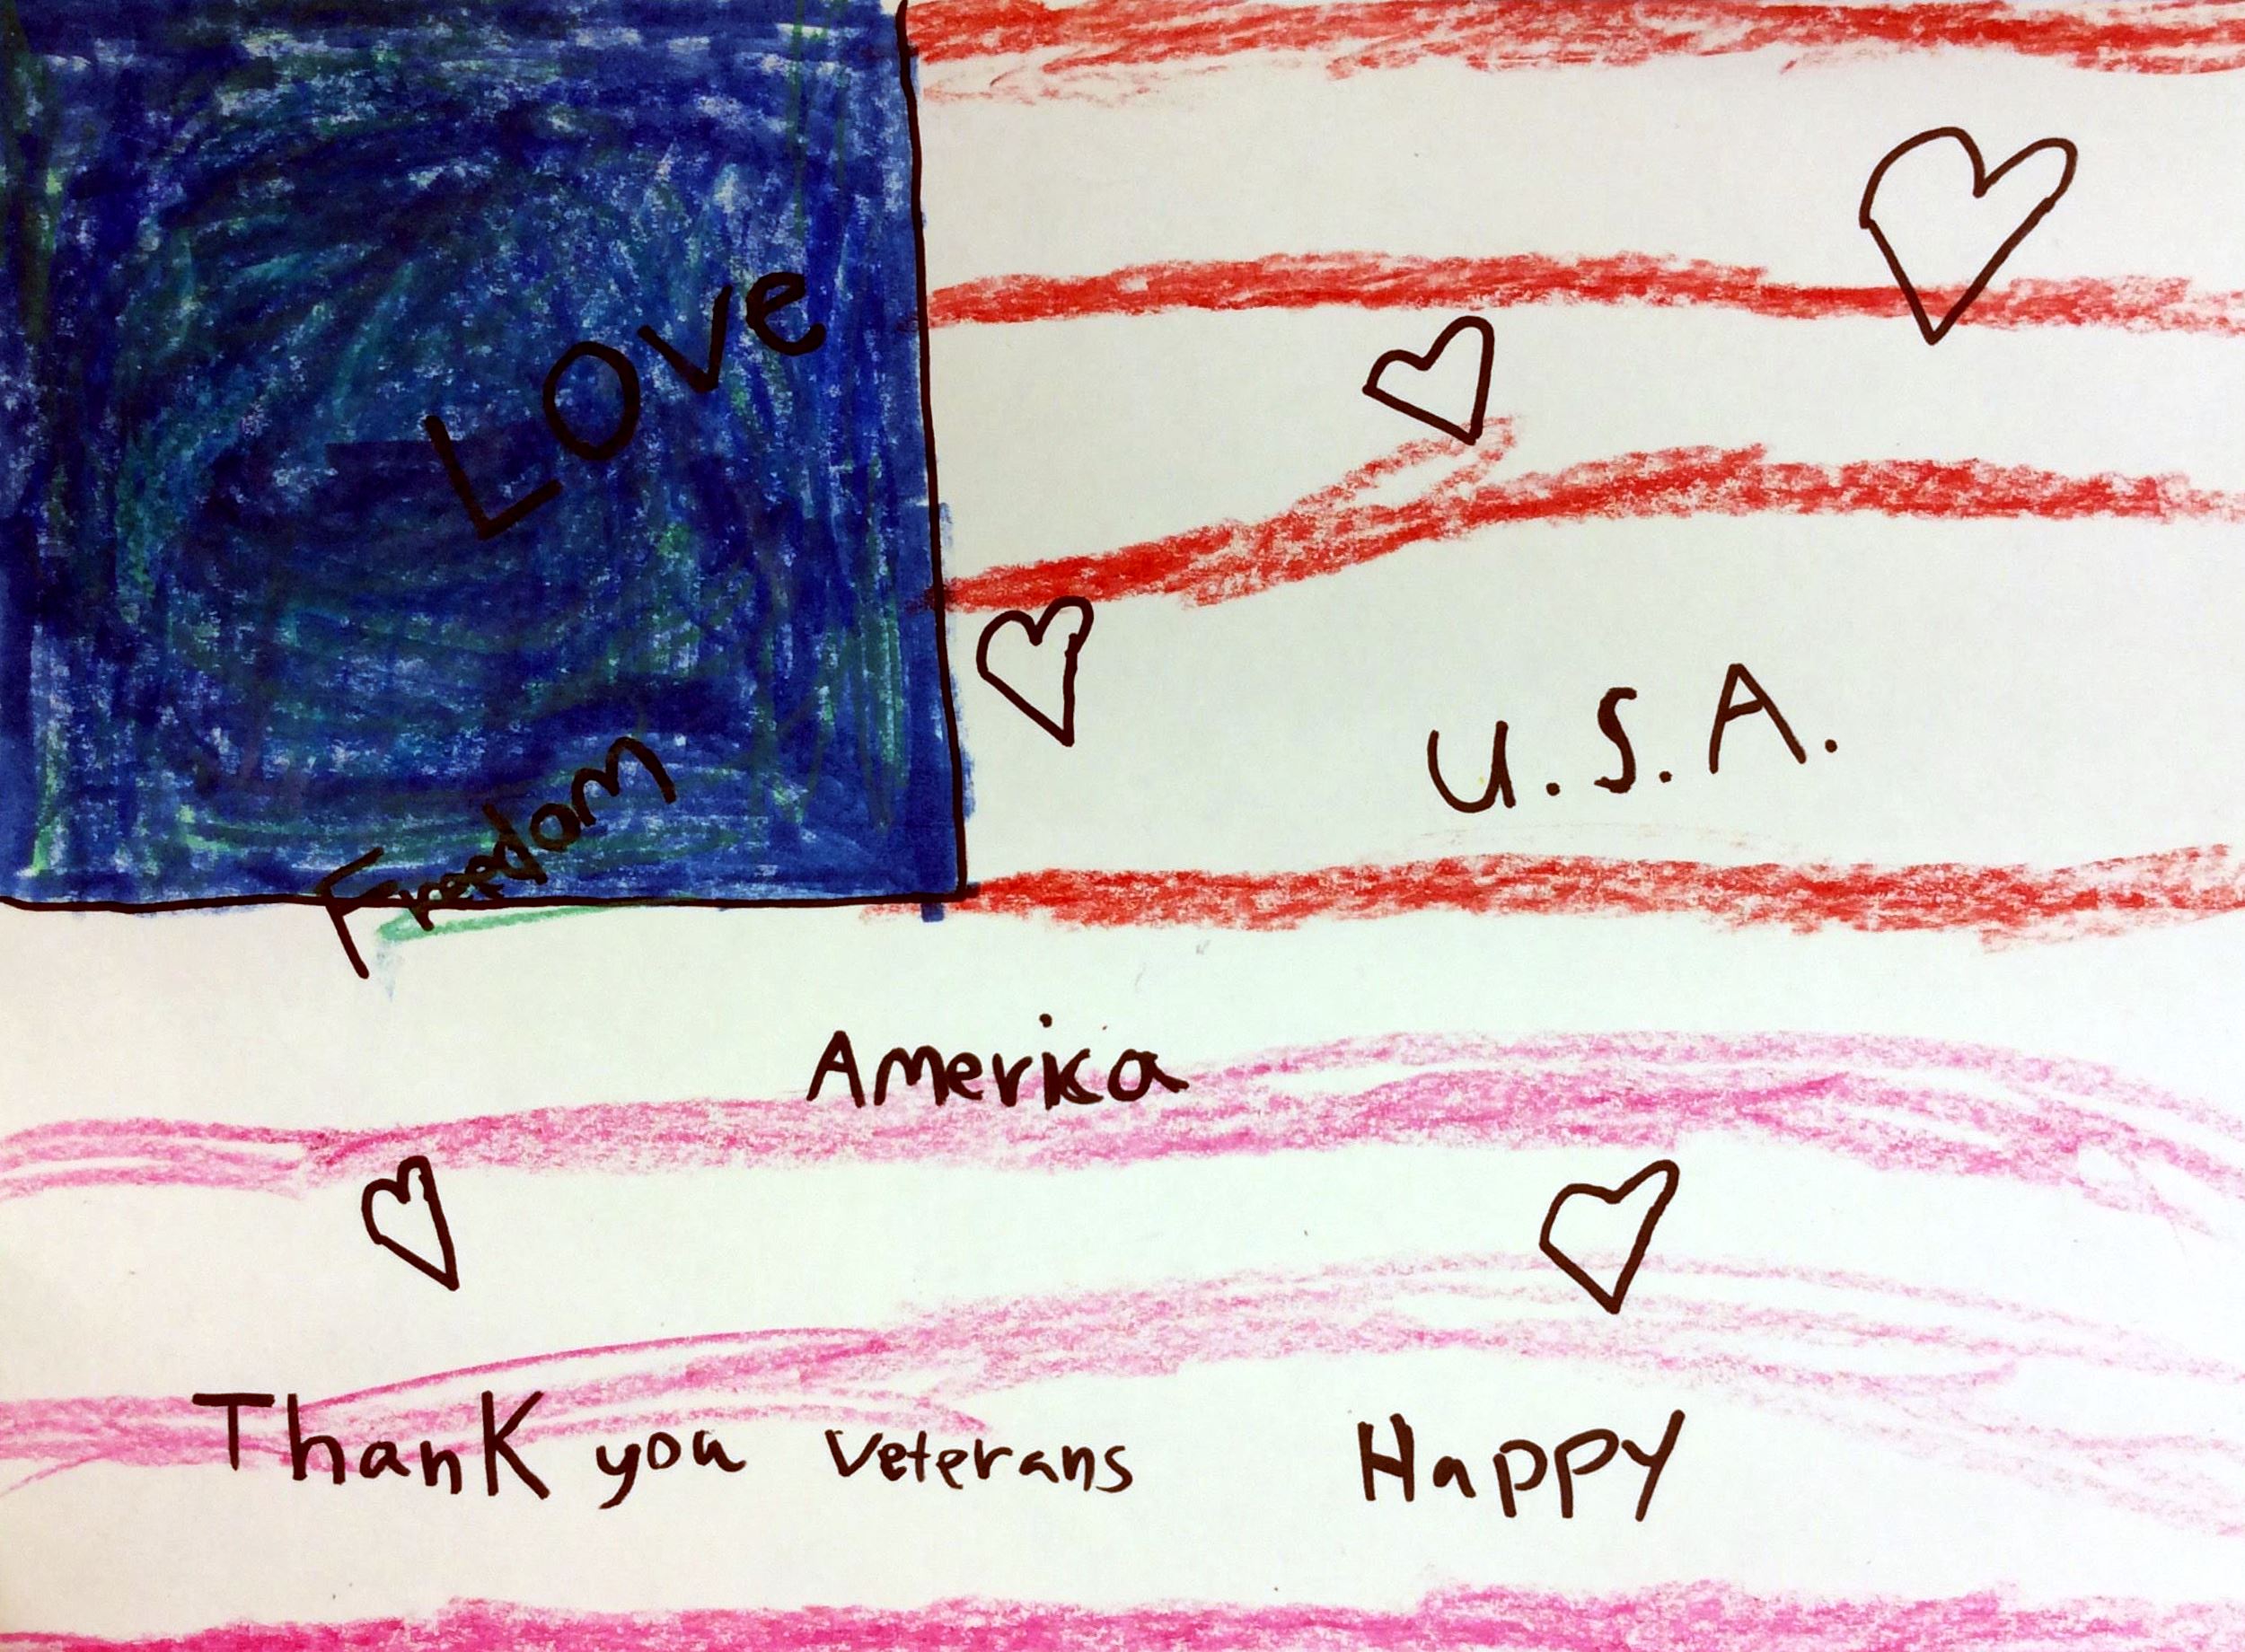 Love
Freedom
U.S.A.
America
Thank you Veterans
Happy